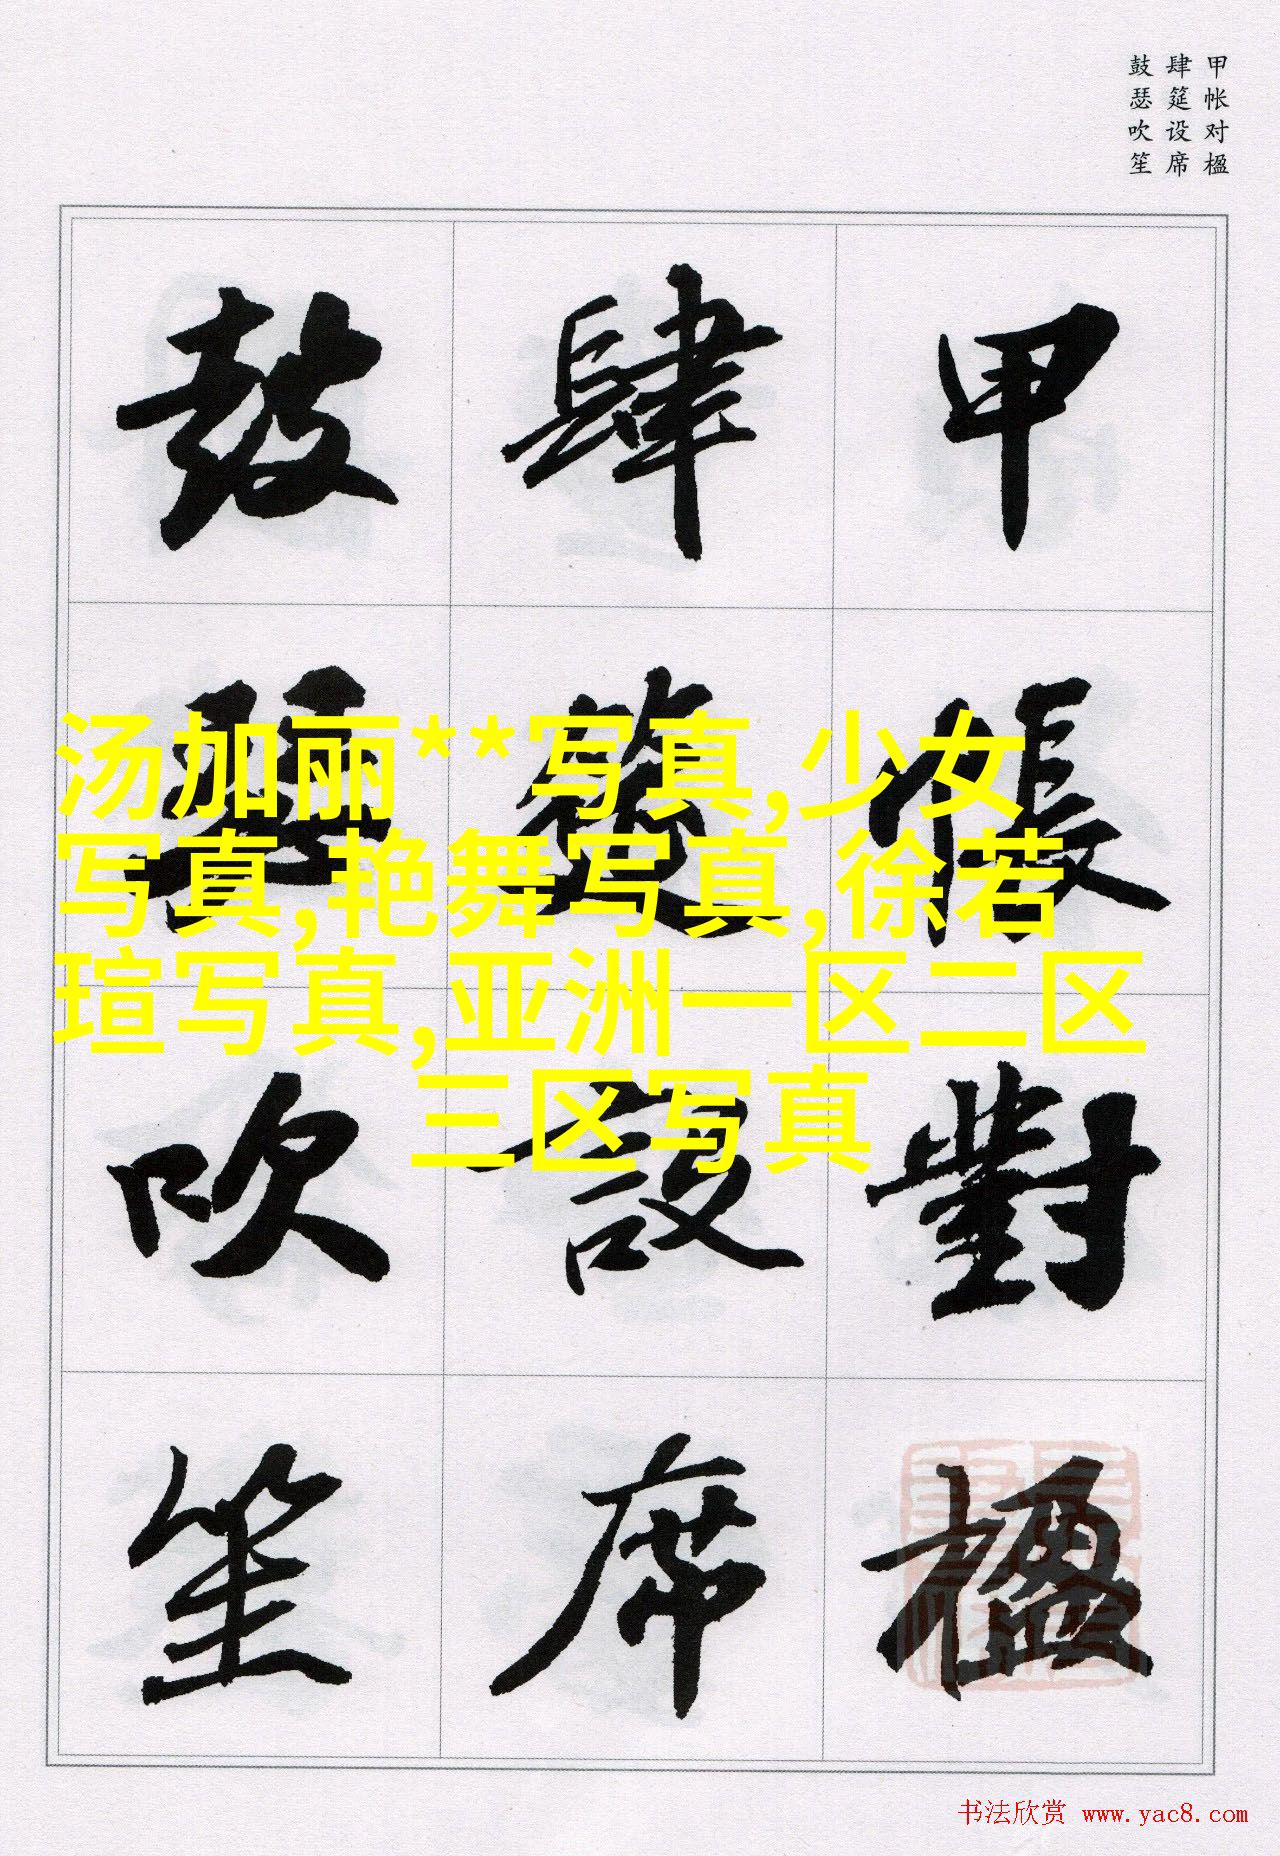 甲帐对楹
肆筵设席
鼓瑟吹笙
甲帳對楹
肆筵設席
鼓瑟吹笙
汤加丽**写真,少女
写真,艳舞写真,徐若
瑄写真,亚洲一区二区
三区写真
书法欣赏 www.yac8.com